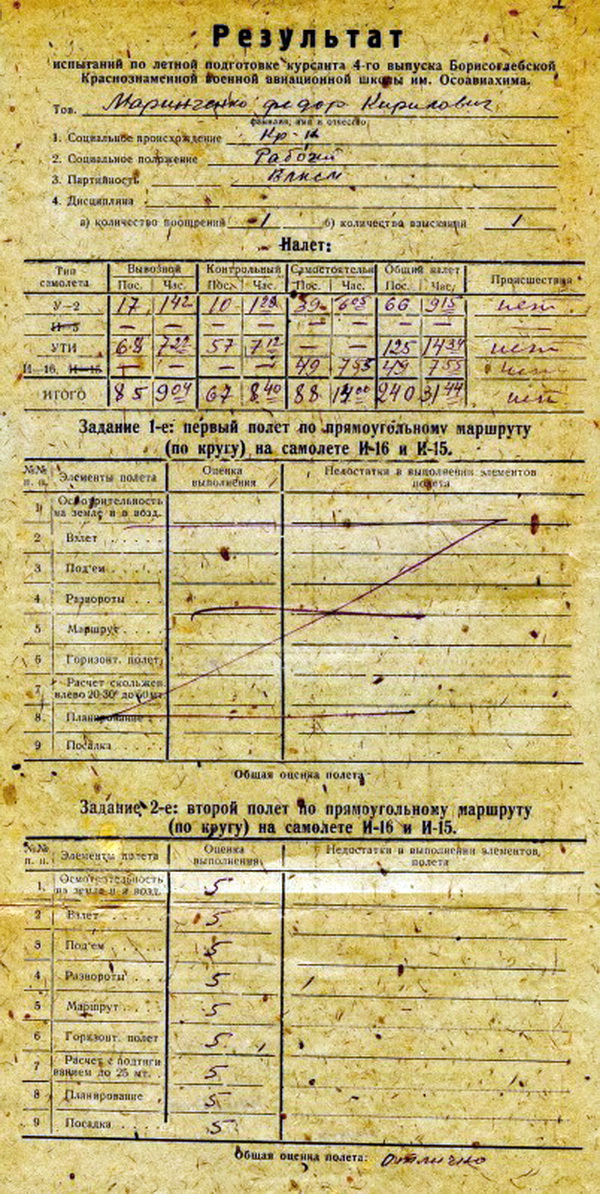 Результат
испытаний по летной подготовке курсанта 4-го выпуска Борисоглебской
Краснознаменной военной авиационной школы им. Осоавиахима.
Тов. Маринченко Федор Кирилович
фамилия, имя и отчество
1. Социальное происхождение Кр-н
2. Социальное положение Рабочий
3. Партийность ВЛКСМ
4. Дисциплина
а) количество поощрений 1 б) количество взысканий 1
Налет:
Тип самолета Вывозной Контрольный Самостоятельн Общий налет Происшествия
Пос. Час. Пос. Час. Пос. Час. Пос. Час.
У-2 17 1 42 10 1 28 39 6 05 66 9 15 нет
И-5 — — — — — — — — —
УТИ 68 7 22 57 7 12 — — 125 14 34 нет
И-16, И-15 — — — — 49 7 55 49 7 55 нет
ИТОГО 85 9 04 67 8 40 88 14 00 240 31 44 нет
Задание 1-е: первый полет по прямоугольному маршруту
(по кругу) на самолете И-16 и И-15.
№№ п. п. Элементы полета Оценка выполнения Недостатки в выполнении элементов полета
1 Осмотрительность на земле и в возд.
2 Взлет . . . . .
3 Под'ем . . . .
4 Развороты . . . .
5 Маршрут . . . .
6 Горизонт. полет
7 Расчет скольжен. влево 20-30° до 50 мт.
8. Планирование
9 Посадка . . .
Общая оценка полета
Задание 2-е: второй полет по прямоугольному маршруту
(по кругу) на самолете И-16 и И-15.
№№ п. п. Элементы полета Оценка выполнения Недостатки в выполнении элементов, полета
1. Осмотрительность на земле и в возд. 5
2 Взлет . . . . 5
3 Под'ем . . . . 5
4 Развороты . . . 5
5 Маршрут . . . . 5
6 Горизонт. полет 5
7 Расчет с подтягиванием до 25 мт. 5
8 Планирование 5
9 Посадка . . . 5
Общая оценка полета: отлично